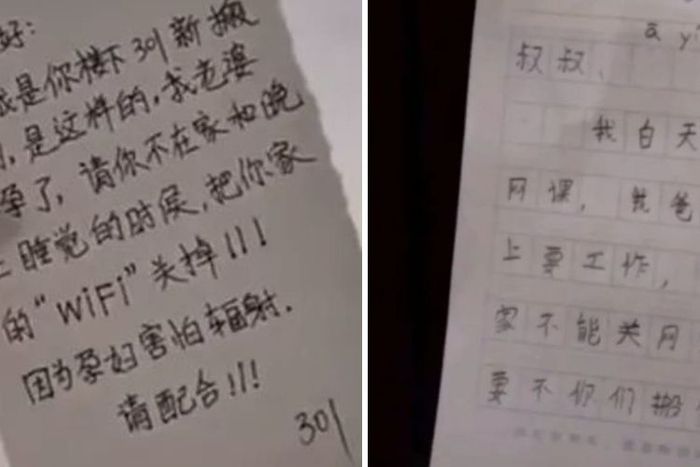 好:
我是你楼下301新搬
,是这样的,我老婆
孕了,请你不在家和晚
上睡觉的时候,把你家
的“WiFi”关掉!!!
因为孕妇害怕辐射.
请配合!!!
301
ā yí
叔叔、
我白天
网课,我爸
上要工作,
家不能关网
要不你们搬